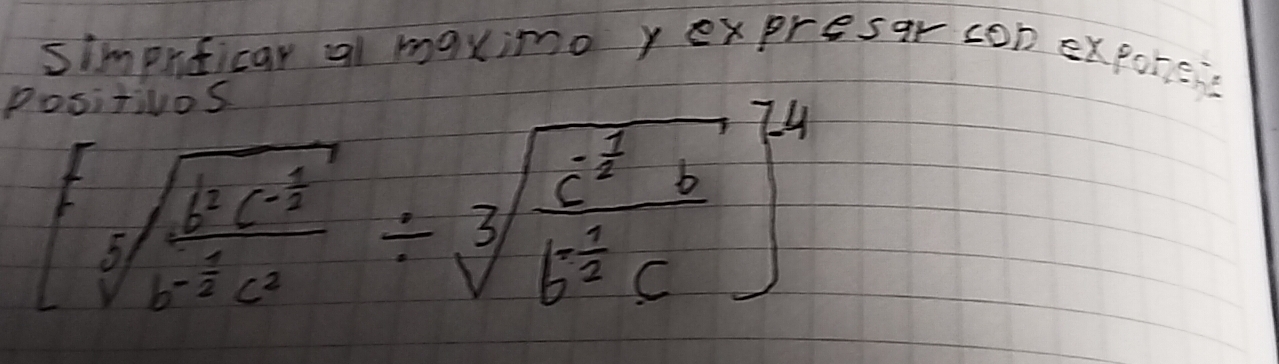 simplificar al maximo y expresar con exponente
positivos
[ ⁵√(b² c^(-1/2) / b^(-1/2) c²) ÷ ³√(c^(-1/2) b / b^(-1/2) c) ]^-4